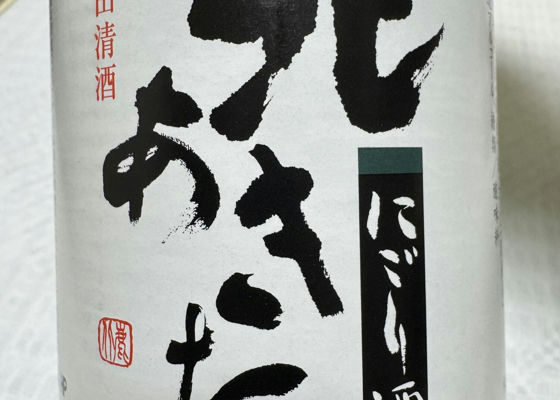 北
あきた
にごり酒
田清酒